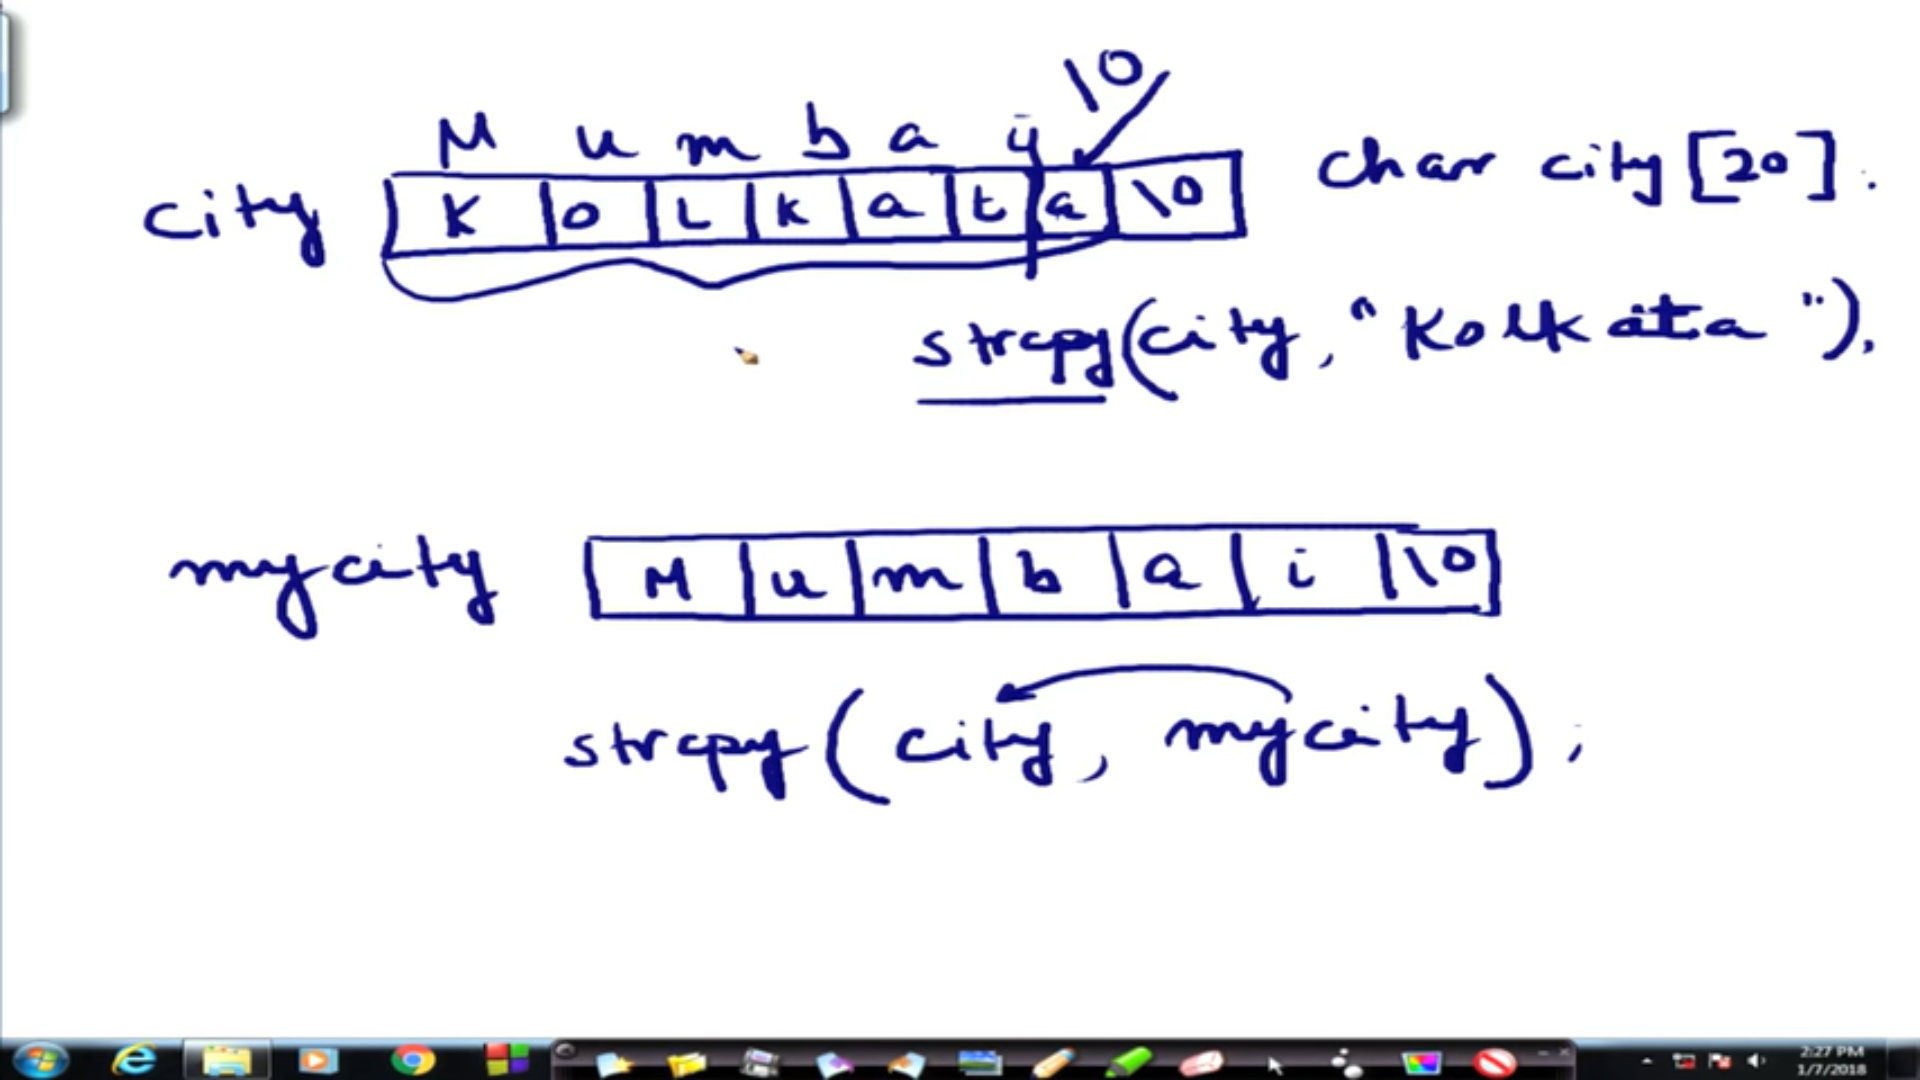 \0
M u m b a i
city K o L k a t a \0 char city [20].
strcpy(city, "Kolkata"),
mycity M u m b a i \0
strcpy(city, mycity);
2:27 PM
1/7/2018